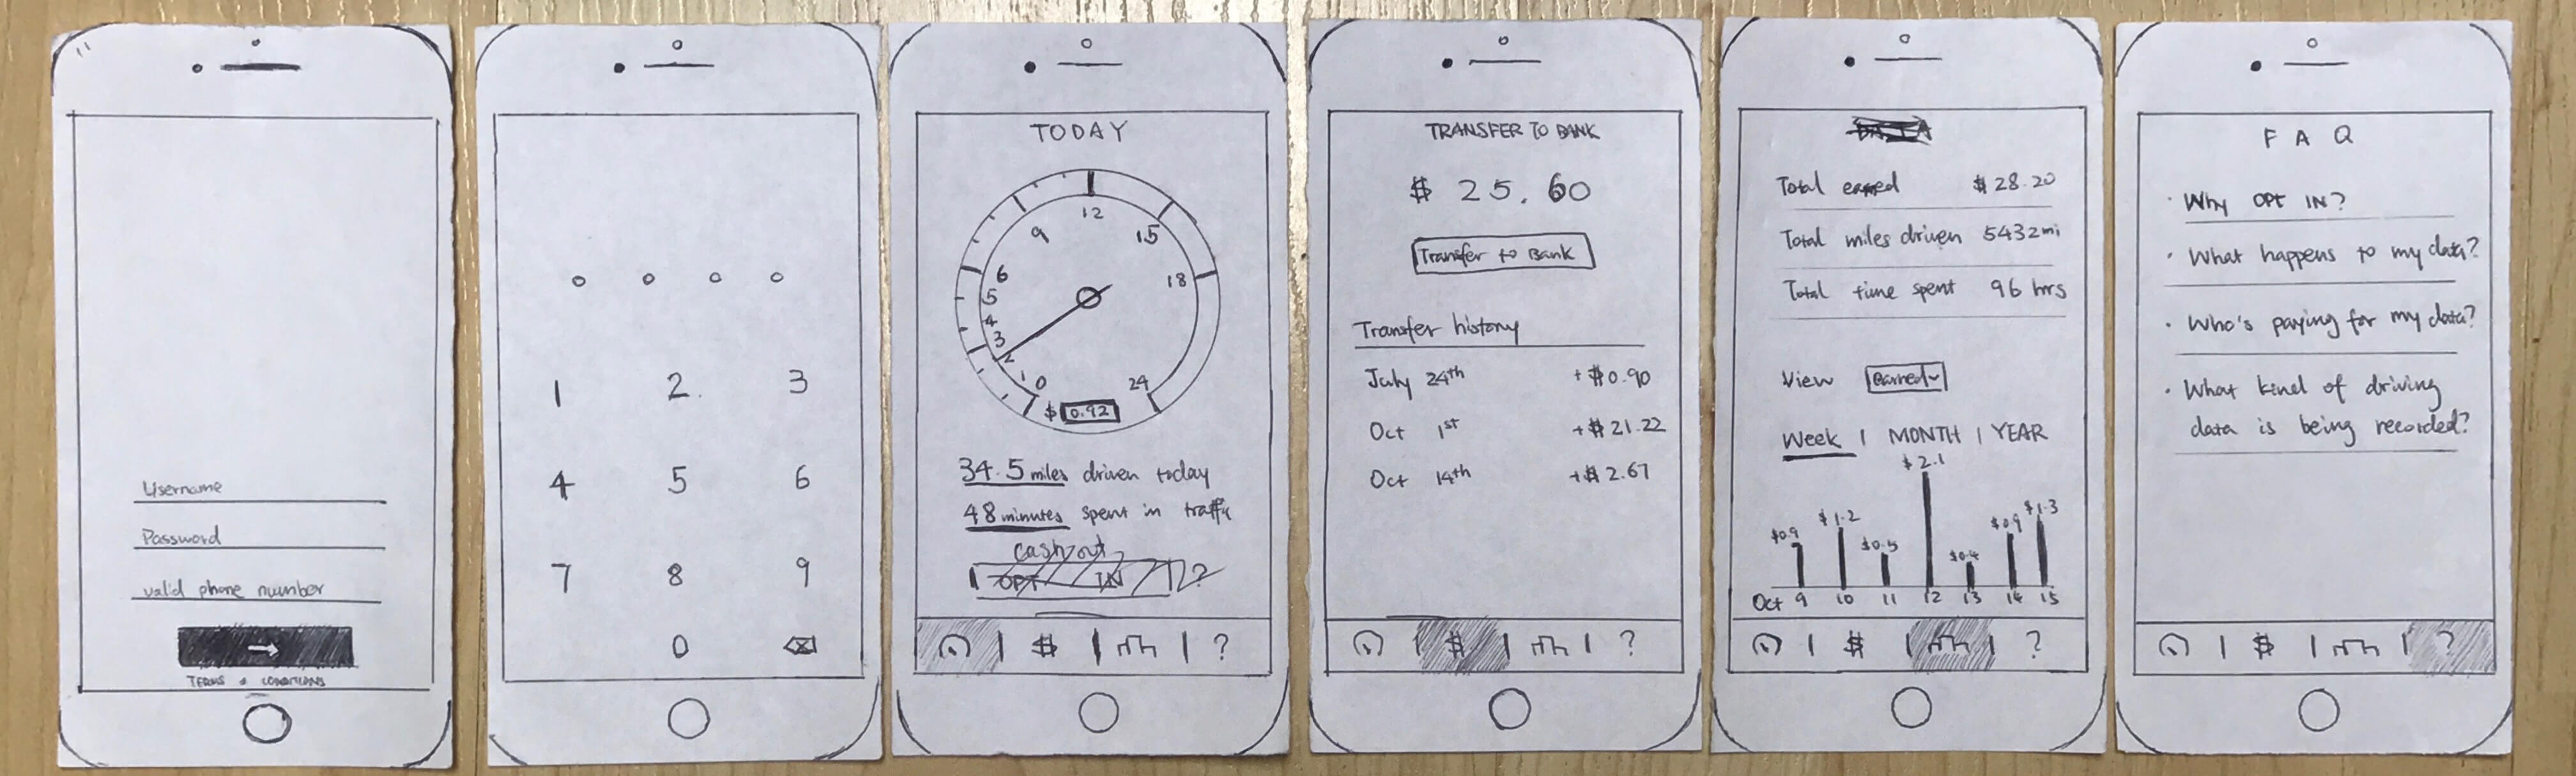 Username
Password
valid phone number
→
TERMS & CONDITIONS
1 2. 3
4 5 6
7 8 9
0
TODAY
12
9 15
6 18
5
4
3
2
1 0 24
$ 0.92
34.5 miles driven today
48 minutes spent in traffic
cash out
OPT IN ?
$ ?
TRANSFER TO BANK
$ 25.60
Transfer to Bank
Transfer history
July 24th +$0.90
Oct 1st +$21.22
Oct 14th +$2.67
$ ?
DATA
Total earned $28.20
Total miles driven 5432mi
Total time spent 96 hrs
View earned
Week | MONTH | YEAR
$0.9 $1.2 $0.5 $2.1 $0.4 $0.9 $1.3
Oct 9 10 11 12 13 14 15
$ ?
FAQ
· Why OPT IN?
· What happens to my data?
· Who's paying for my data?
· What kind of driving
data is being recorded?
$ ?